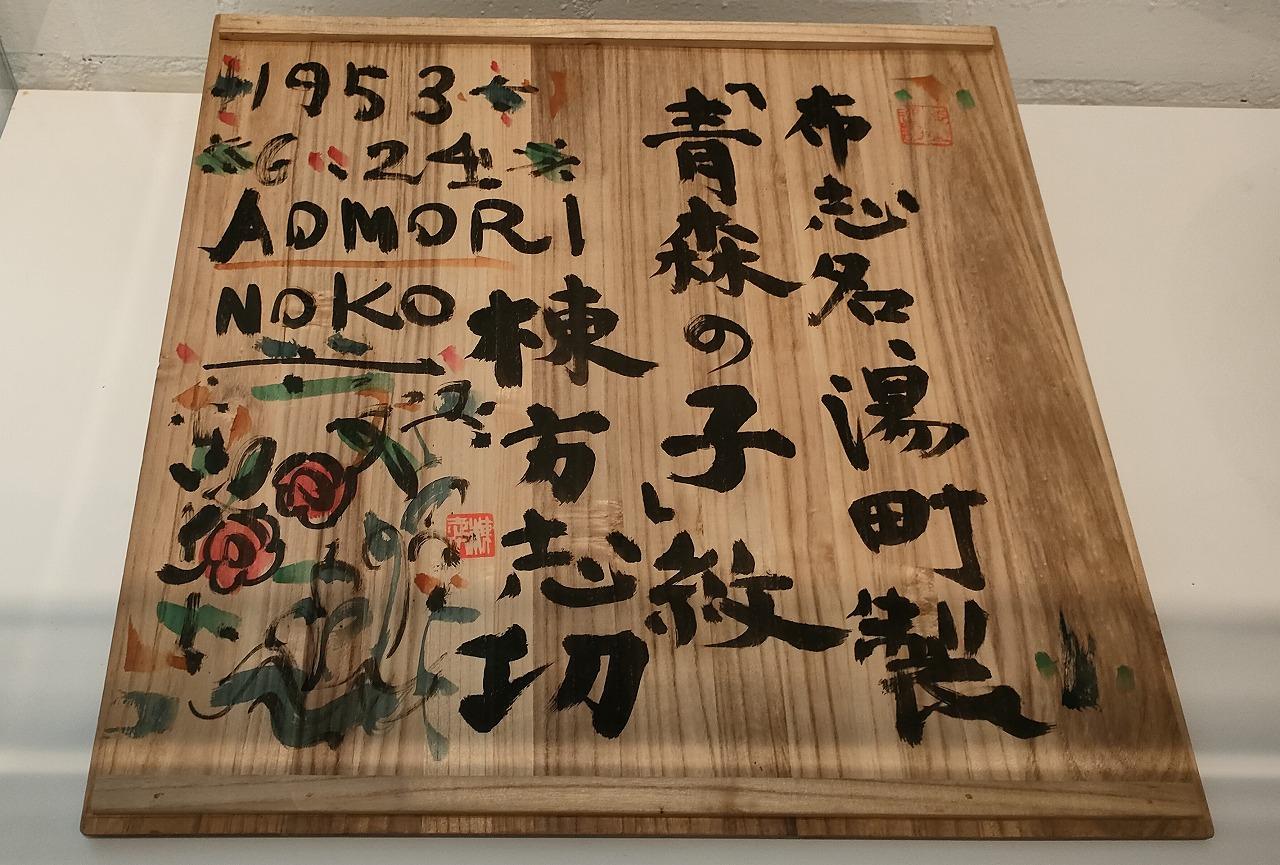 布志名湯町製
「青森の子」紋
棟方志功
1953
6 24
AOMORI
NOKO